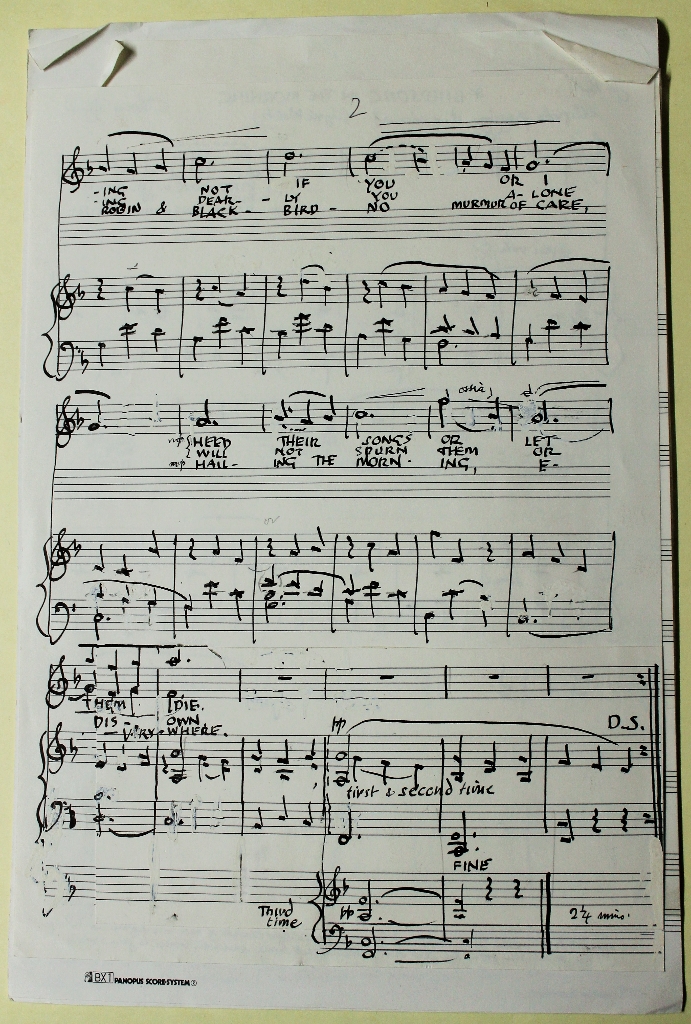 2
-ING NOT IF YOU OR I
-ING DEAR- LY YOU A- LONE
ROBIN & BLACK- BIRD- NO MURMUR OF CARE,
ossia
mf SHEED THEIR SONGS OR LET
WILL NOT SPURN THEM OR
mp HAIL- ING THE MORN- ING, E-
THEM DIE.
DIS- OWN
VRY- WHERE.
pp
D.S.
first & second time
FINE
Third time
pp
2 1/4 mins.
BXT PANOPUS SCORE-SYSTEM